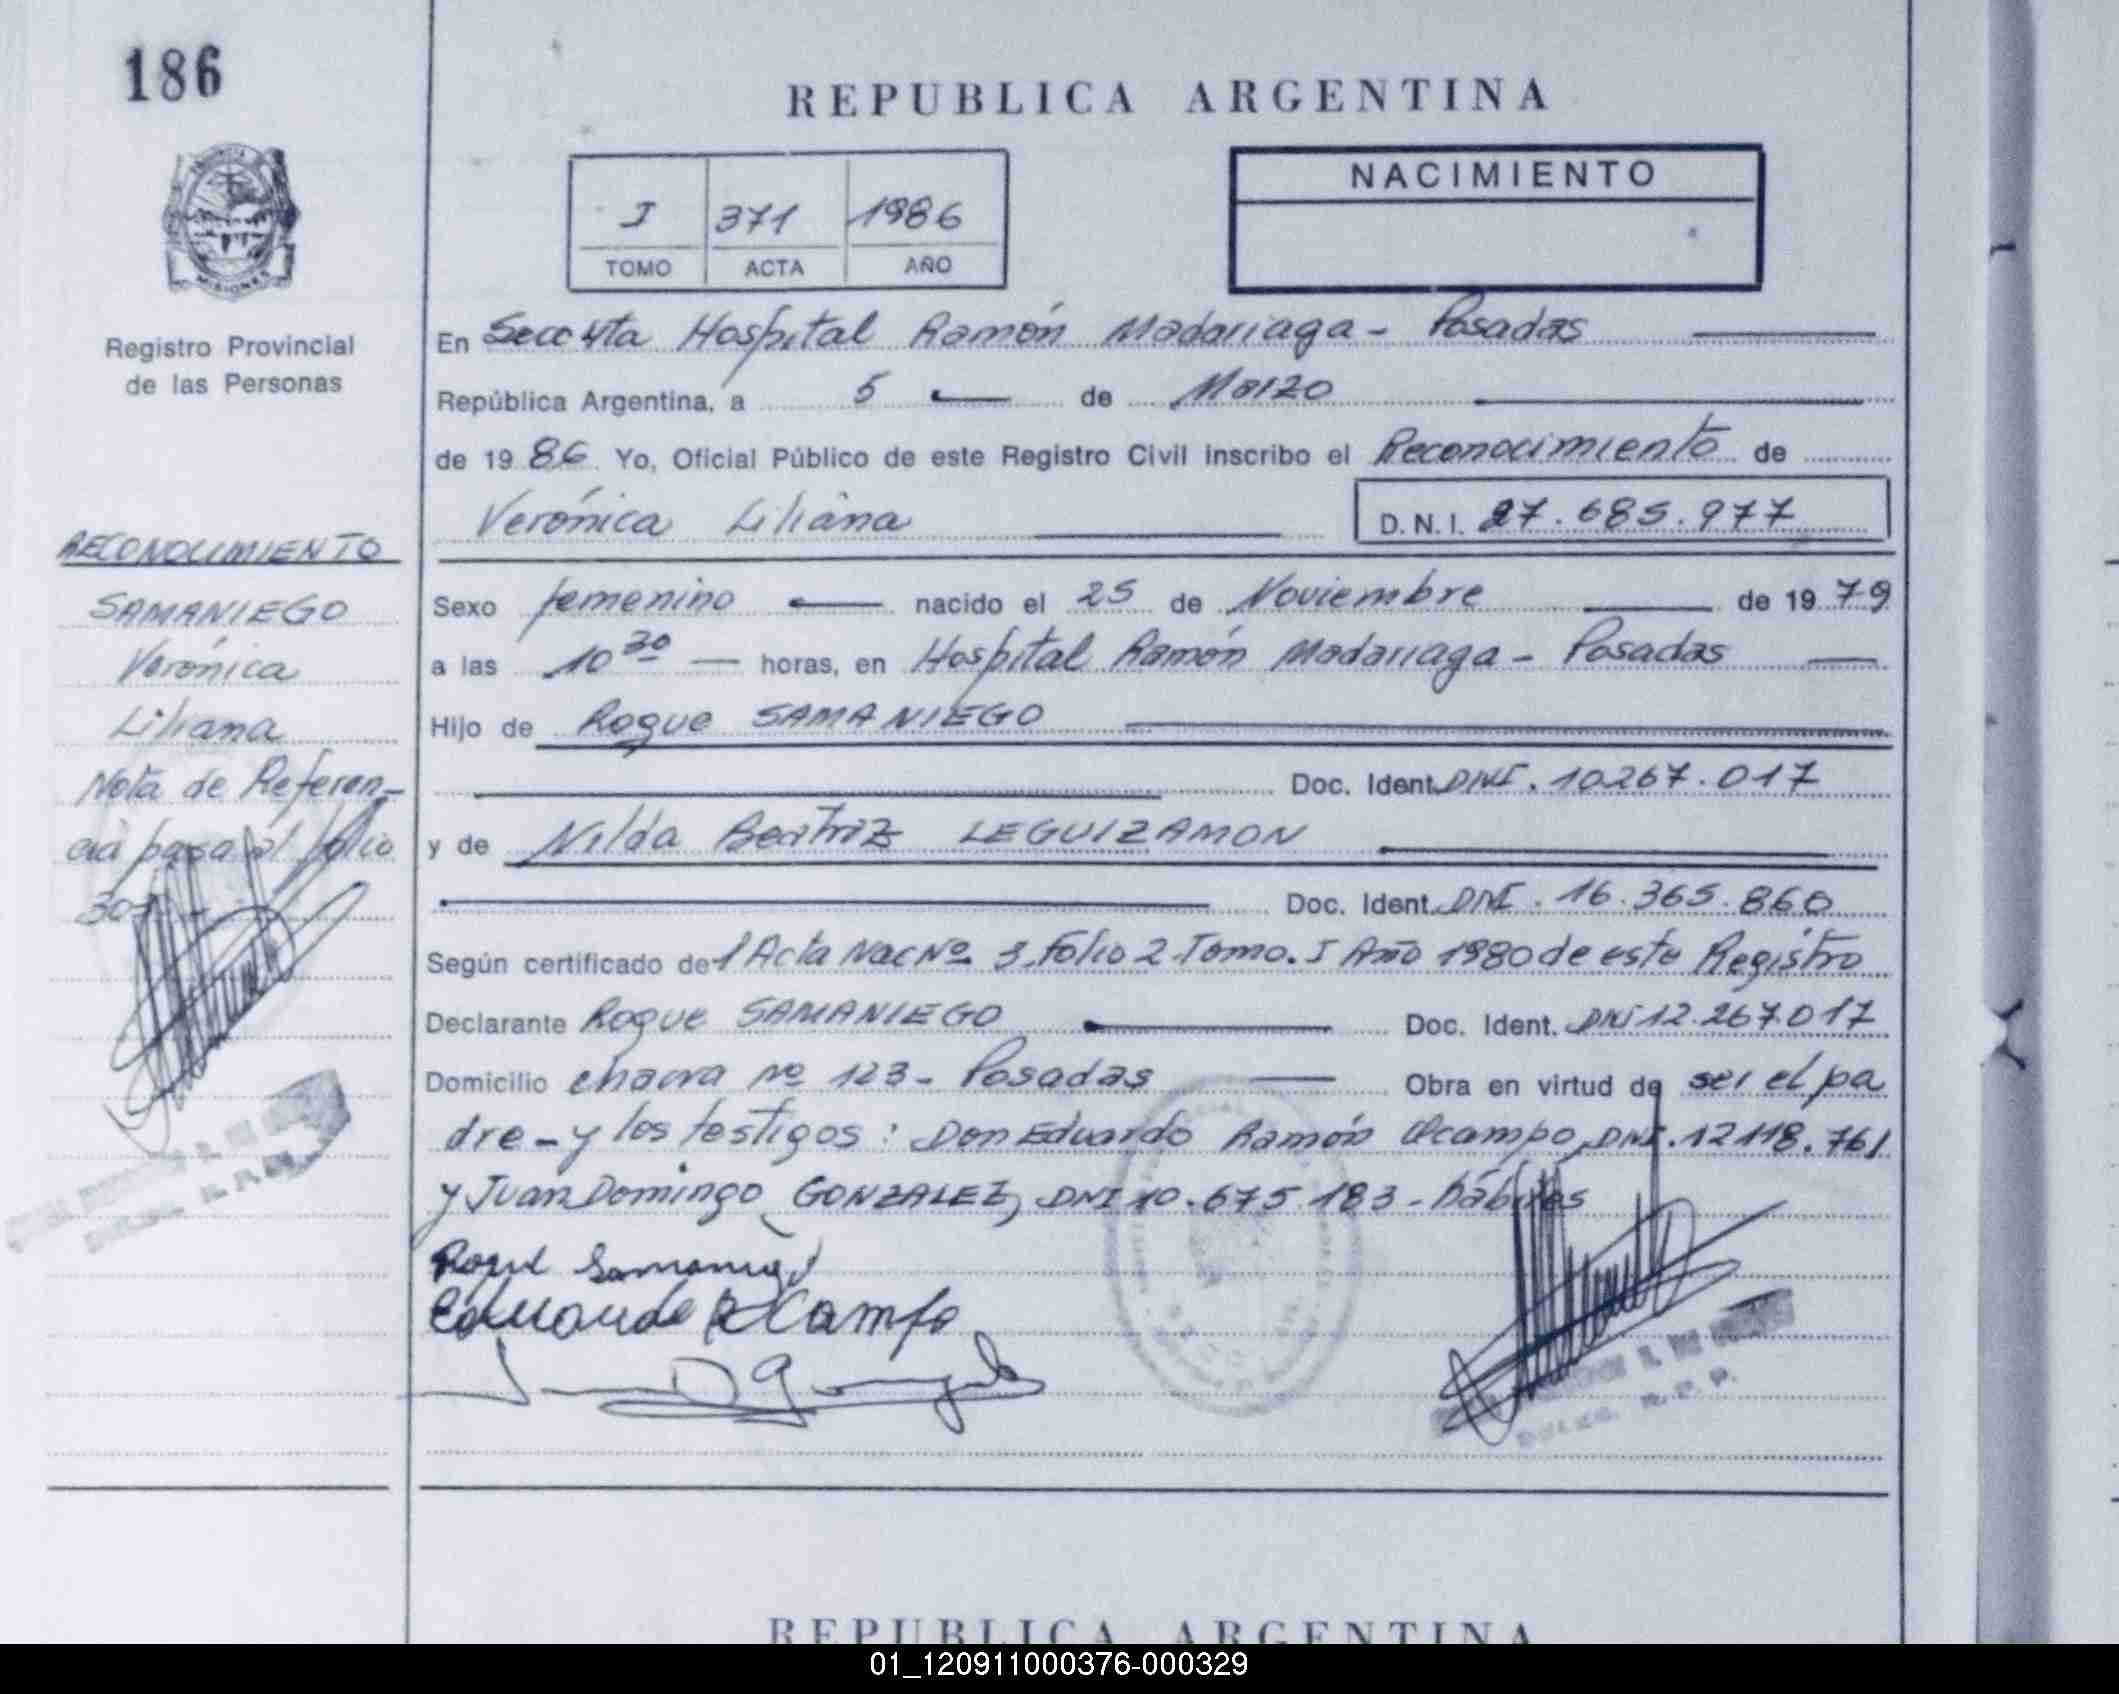 186
REPUBLICA ARGENTINA
NACIMIENTO
I 371 1986
TOMO ACTA AÑO
Registro Provincial
de las Personas
En Secc 4ta Hospital Ramón Madariaga - Posadas
República Argentina, a 5 de Marzo
de 19 86 Yo, Oficial Público de este Registro Civil inscribo el Reconocimiento de
Verónica Liliana D.N.I. 27.685.977
Sexo femenino nacido el 25 de Noviembre de 19 79
a las 10 30 horas, en Hospital Ramón Madariaga - Posadas
Hijo de Roque SAMANIEGO
Doc. Ident. DNI. 10267.017
y de Nilda Beatriz LEGUIZAMON
Doc. Ident. DNI. 16.365.860
Según certificado del Acta Nac Nº 3 Folio 2 Tomo. I Año 1980 de este Registro
Declarante Roque SAMANIEGO Doc. Ident. DNI 12.267.017
Domicilio chacra nº 123 - Posadas Obra en virtud de ser el pa
dre - y los testigos: Don Eduardo Ramón Ocampo, DNI. 12118.761
y Juan Domingo GONZALEZ, DNI 10.675.183 - hábiles
RECONOCIMIENTO
SAMANIEGO
Verónica
Liliana
Nota de Referen-
cia pasa al folio
Roque Samaniego
Eduardo R Ocampo
R. P. P.
REPUBLICA ARGENTINA
01_120911000376-000329